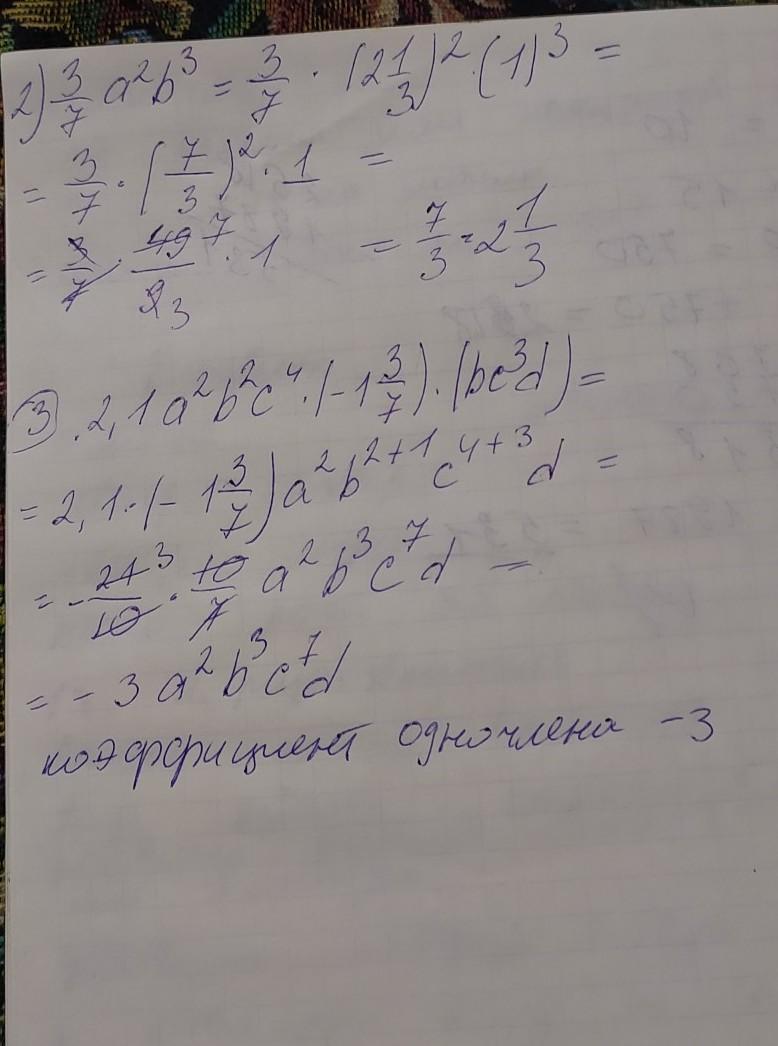 2) 3/7 a²b³ = 3/7 · (2 1/3)² · (1)³ =
= 3/7 · (7/3)² · 1 =
= 3/7 · 49/9 7 3 · 1 = 7/3 = 2 1/3
③ . 2,1a²b²c⁴ · (-1 3/7) · (bc³d) =
= 2,1 · (-1 3/7) a²b²⁺¹c⁴⁺³d =
= - 21/10 3 · 10/7 a²b³c⁷d =
= -3a²b³c⁷d
коэффициент одночлена -3